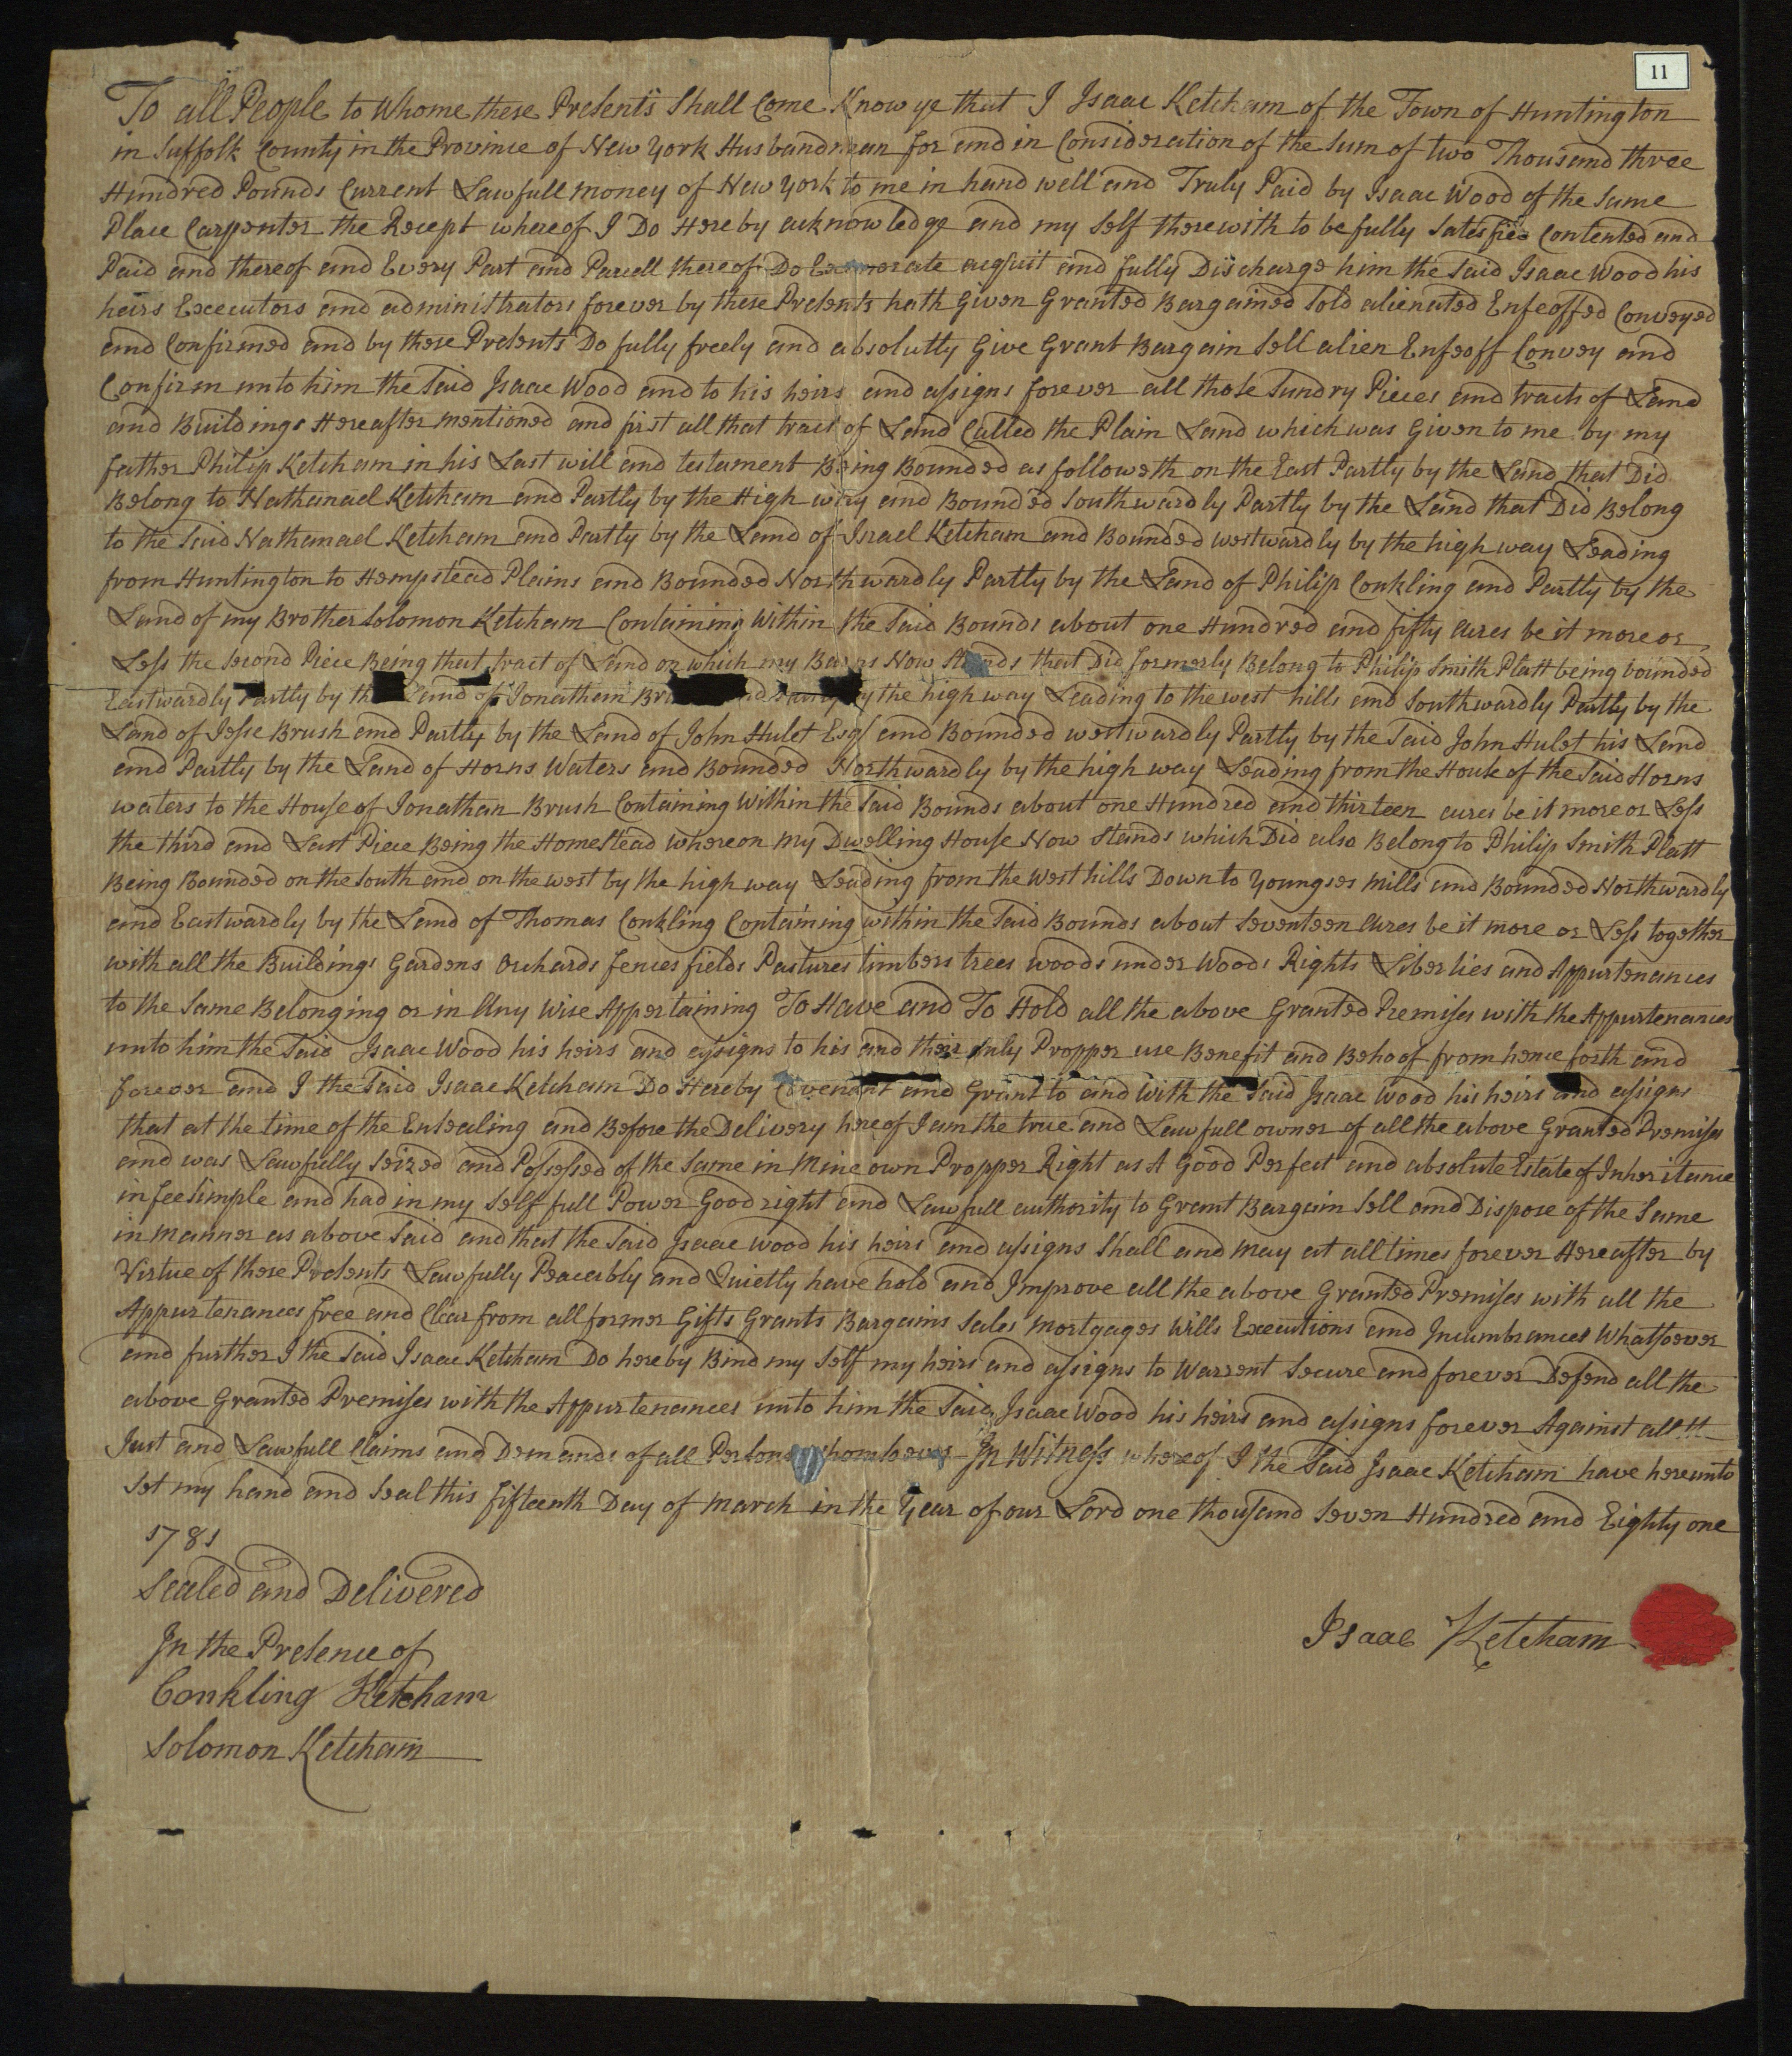 11
To all People to Whome these Presents Shall Come Know ye that I Isaac Ketcham of the Town of Huntington
in Suffolk County in the Province of New York Husbandman for and in Consideration of the Sum of two Thousand three
Hundred Pounds Current Lawfull money of New York to me in hand well and Truly Paid by Isaac Wood of the Same
Place Carpenter the Recept whereof I Do Hereby acknowledge and my Self therewith to be fully Satesfied Contented and
Paid and thereof and Every Part and Parcell thereof Do Exonerate acquit and fully Discharge him the Said Isaac Wood his
heirs Executors and administrators forever by these Presents hath Given Granted Bargained Sold alienated Enfeoffed Conveyed
and Confirmed and by these Presents Do fully freely and absolutly Give Grant Bargain Sell alien Enfeoff Convey and
Confirm unto him the Said Isaac Wood and to his heirs and assigns forever all those Sundry Pieces and tracts of Land
and Buildings Hereafter mentioned and first all that tract of Land Called the Plain Land which was Given to me by my
father Philip Ketcham in his Last will and testament Being Bounded as followeth on the East Partly by the Land that Did
Belong to Nathanael Ketcham and Partly by the High way and Bounded Southwardly Partly by the Land that Did Belong
to the Said Nathanael Ketcham and Partly by the Land of Israel Ketcham and Bounded westwardly by the high way Leading
from Huntington to Hempstead Plains and Bounded Northwardly Partly by the Land of Philip Conkling and Partly by the
Land of my Brother Solomon Ketcham Containing Within the Said Bounds about one Hundred and fifty acres be it more or
Less the Second Piece Being that tract of Land on which my Barns Now Stands that Did formerly Belong to Philip Smith Platt being bounded
Eastwardly Partly by the Land of Jonathan by the high way Leading to the west hills and Southwardly Partly by the
Land of Jesse Brush and Partly by the Land of John Hulet Esq/ and Bounded westwardly Partly by the Said John Hulet his Land
and Partly by the Land of Horns Waters and Bounded Northwardly by the high way Leading from the House of the Said Horns
waters to the House of Jonathan Brush Containing Within the Said Bounds about one Hundred and thirteen acres be it more or Less
the third and Last Piece Being the Homestead whereon my Dwelling House Now Stands which Did also Belong to Philip Smith Platt
Being Bounded on the South and on the west by the high way Leading from the West hills Down to Youngses Mills and Bounded Northwardly
and Eastwardly by the Land of Thomas Conkling Containing within the Said Bounds about Seventeen Acres be it more or Less together
with all the Buildings Gardens Orchards fences fields Pastures timbers trees woods under Woods Rights Liberties and Appurtenances
to the Same Belonging or in Any Wise Appertaining To Have and To Hold all the above Granted Premises with the Appurtenances
unto him the Said Isaac Wood his heirs and assigns to his and their only Propper use Benefit and Behoof from hence forth and
forever and I the Said Isaac Ketcham Do Hereby Covenant and Grant to and with the Said Isaac Wood his heirs and assigns
that at the time of the Ensealing and Before the Delivery hereof I am the true and Lawfull owner of all the above Granted Premises
and was Lawfully Seized and Possessed of the Same in Mine own Propper Right as A Good Perfect and absolute Estate of Inheritance
in fee Simple and had in my Self full Power Good right and Lawfull authority to Grant Bargain Sell and Dispose of the Same
in Manner as above Said and that the Said Isaac Wood his heirs and assigns Shall and May at all times forever Hereafter by
Virtue of these Presents Lawfully Peaceably and Quietly have hold and Improve all the above Granted Premises with all the
Appurtenances free and Clear from all former Gifts Grants Bargains Sales Mortgages Wills Executions and Incumbrances Whatsoever
and further I the Said Isaac Ketcham Do hereby Bind my Self my heirs and assigns to Warrent Secure and forever Defend all the
above Granted Premises with the Appurtenances unto him the Said Isaac Wood his heirs and assigns forever Against all
Just and Lawfull Claims and Demands of all Persons whomsoever In Witness whereof I the Said Isaac Ketcham have hereunto
Set my hand and Seal this fifteenth Day of March in the Year of our Lord one thousand Seven Hundred and Eighty one
1781
Sealed and Delivered
In the Presence of
Conkling Ketcham
Solomon Ketcham
Isaac Ketcham